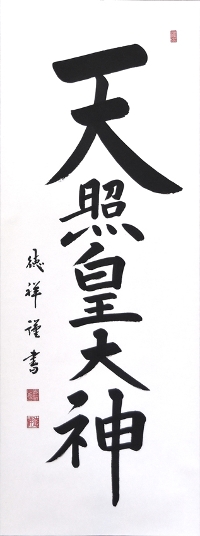 天照皇大神
徳祥謹書